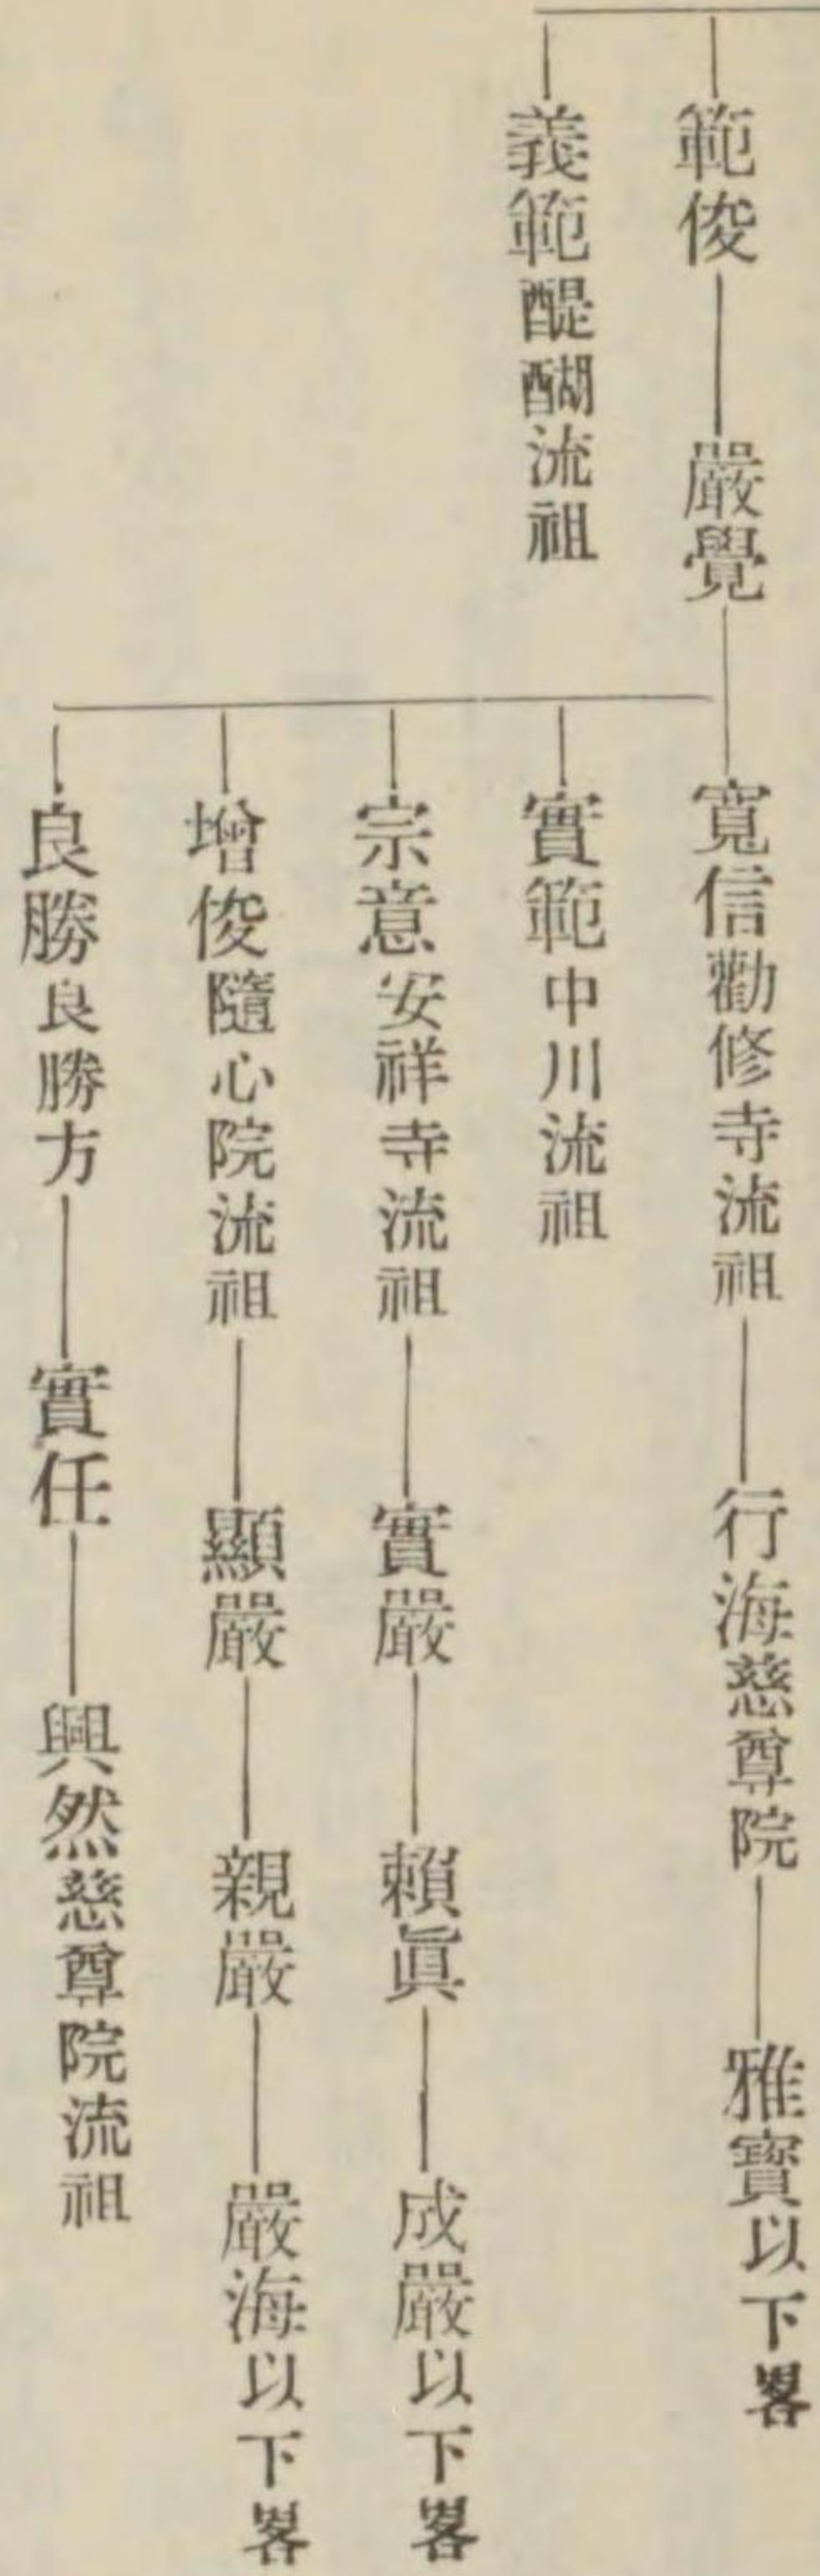 範俊 嚴覺 寬信勸修寺流祖 行海慈尊院 雅寶以下畧
實範中川流祖
宗意安祥寺流祖 實嚴 賴眞 成嚴以下畧
增俊隨心院流祖 顯嚴 親嚴 嚴海以下畧
良勝良勝方 實任 興然慈尊院流祖
義範醍醐流祖